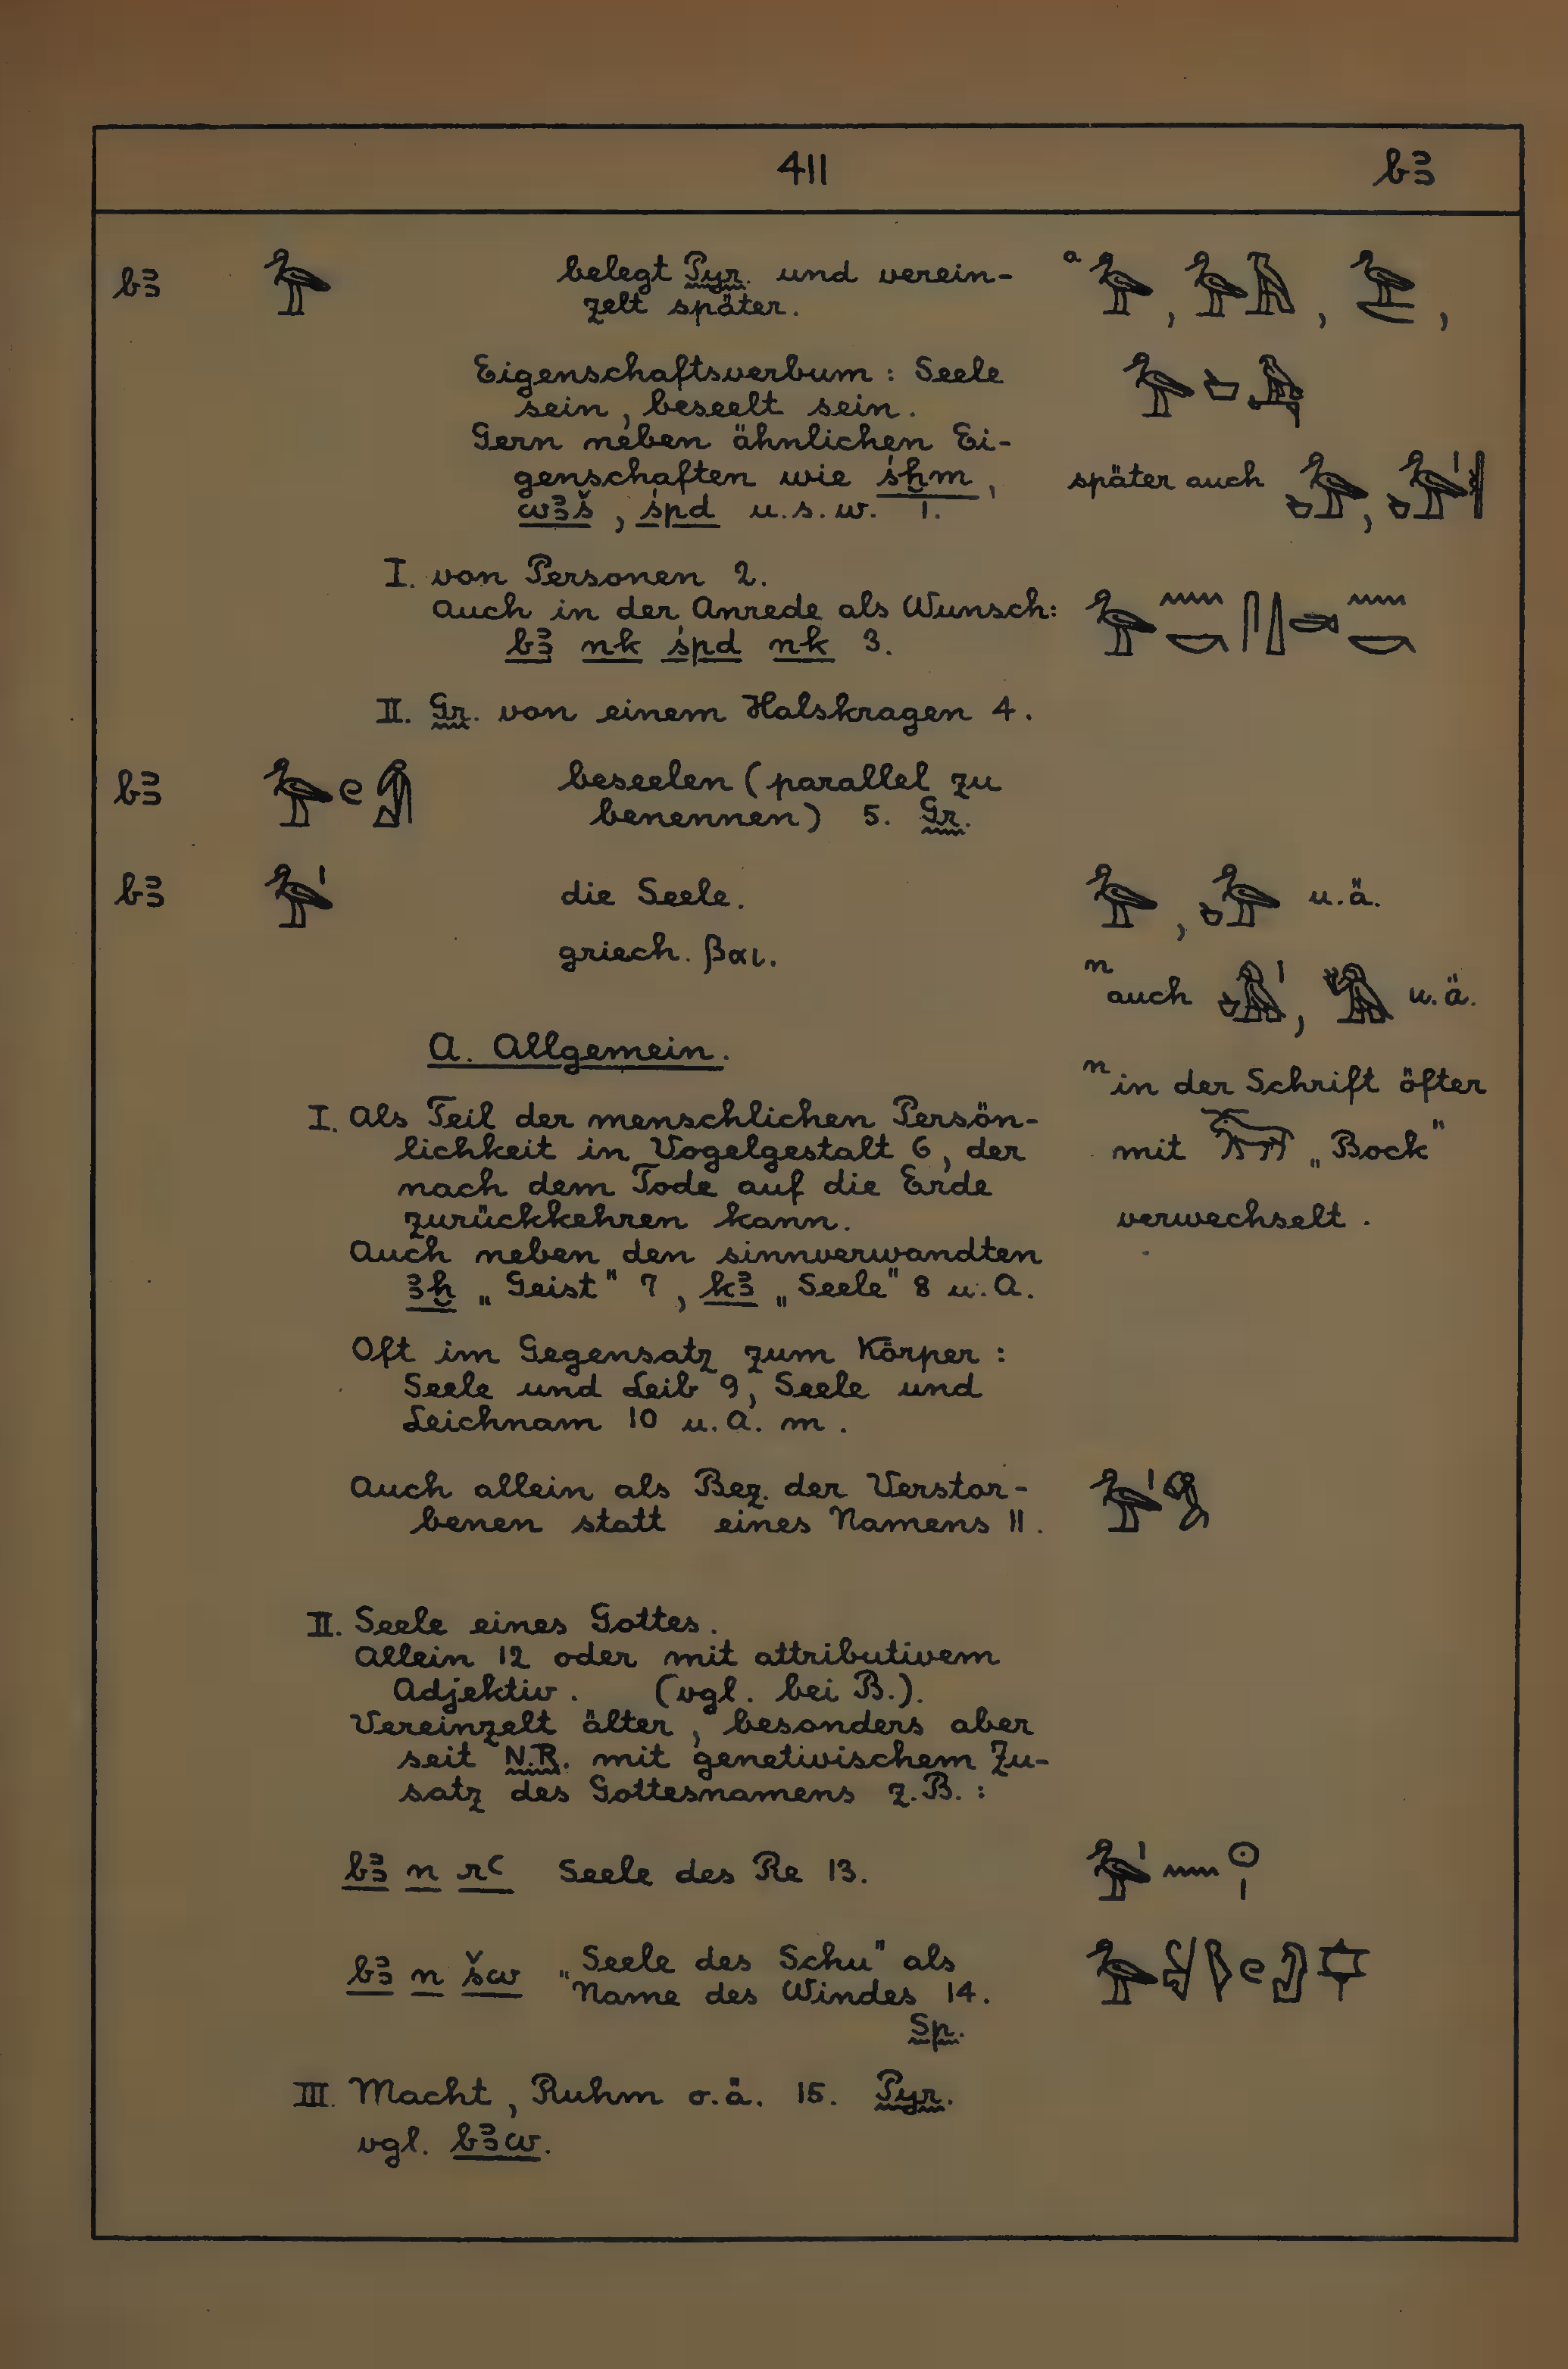 411 bꜣ
bꜣ 𓅡 belegt Pyr. und verein-
zelt später.
a 𓅡, 𓅡, ,
Eigenschaftsverbum: Seele
sein, beseelt sein.
Gern neben ähnlichen Ei-
genschaften wie śḫm,
wꜣš, śpd u.s.w. 1.
später auch
I. von Personen 2.
Auch in der Anrede als Wunsch:
bꜣ nk śpd nk 3.
II. Gr. von einem Halskragen 4.
bꜣ beseelen (parallel zu
benennen) 5. Gr.
bꜣ 𓅡𓏤 die Seele.
𓅡, u.ä.
griech. βαι.
n auch , u.ä.
A. Allgemein.
n in der Schrift öfter
mit „Bock"
verwechselt.
I. Als Teil der menschlichen Persön-
lichkeit in Vogelgestalt 6, der
nach dem Tode auf die Erde
zurückkehren kann.
Auch neben den sinnverwandten
ꜣḫ „Geist" 7, kꜣ „Seele" 8 u. A.
Oft im Gegensatz zum Körper:
Seele und Leib 9, Seele und
Leichnam 10 u. A. m.
Auch allein als Bez. der Verstor-
benen statt eines Namens 11.
II. Seele eines Gottes.
Allein 12 oder mit attributivem
Adjektiv. (vgl. bei B.).
Vereinzelt älter, besonders aber
seit N.R. mit genetivischem Zu-
satz des Gottesnamens z.B.:
bꜣ n rꜥ Seele des Re 13. 𓅡𓏤𓈖𓇳𓏤
bꜣ n šw „Seele des Schu" als
Name des Windes 14.
Sp.
III. Macht, Ruhm o.ä. 15. Pyr.
vgl. bꜣw.